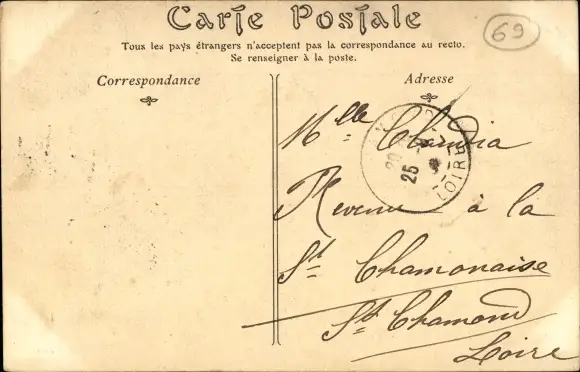 Carte Postale
69
Tous les pays étrangers n'acceptent pas la correspondance au recto.
Se renseigner à la poste.
Correspondance
Adresse
Mlle
à la
St Chamonaise
St Chamond
Loire
25
LOIRE